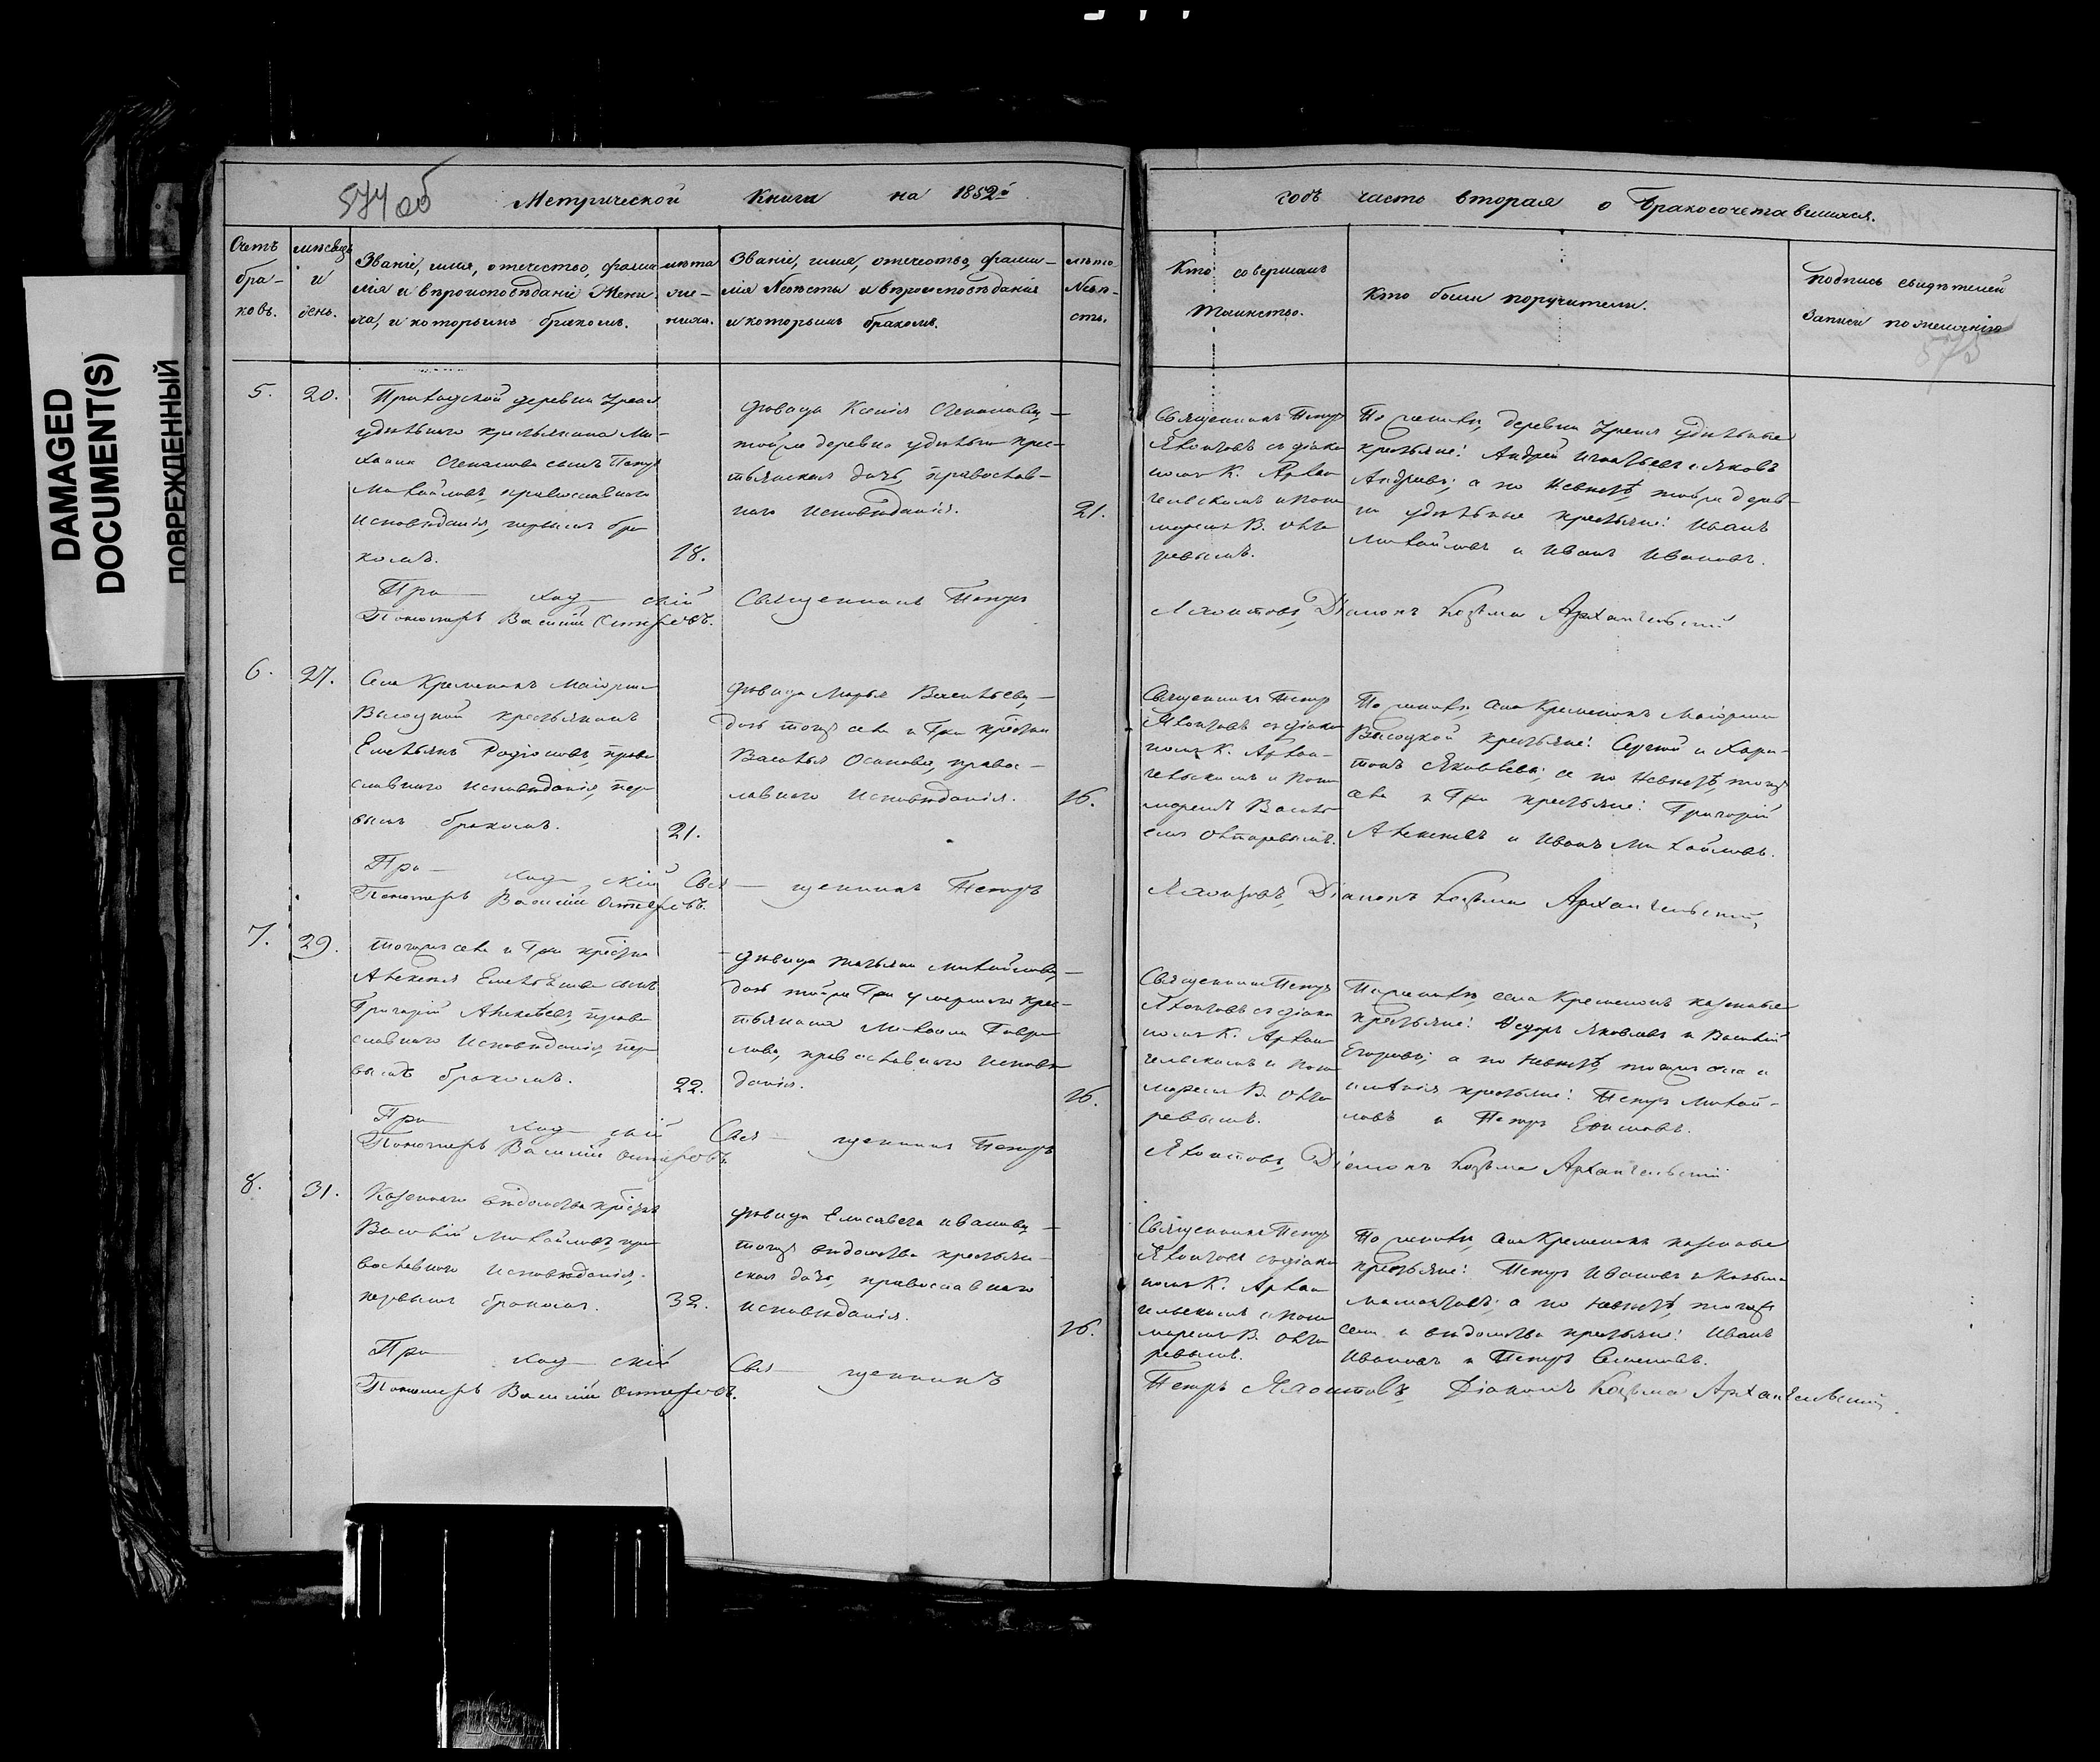 DAMAGED
DOCUMENT(S)
ПОВРЕЖДЕННЫЙ
574 об
Метрической Книги на 1852й
годъ часть вторая о бракосочетавшихся.
Счетъ браковъ.
мѣсяцъ и день.
Званіе, имя, отчество, фами-
лія и вѣроисповѣданіе Жени-
ха, и которымъ бракомъ.
лѣта жениха.
Званіе, имя, отчество, фами-
лія Невѣсты и вѣроисповѣданія
и которымъ бракомъ.
лѣта Невѣсты.
Кто совершалъ
Таинство.
Кто были поручители.
подпись свидѣтелей
записи по желанію
575
5.
20.
деревни
удѣльнаго крестьянина Ми-
Степанова сынъ Петръ
Михайловъ, православнаго
исповѣданія, первымъ бра-
комъ.
18.
дѣвица Ксенія
тойже деревни удѣльн крес-
тьянская дочь, православ-
наго исповѣданія.
21.
Священникъ Петръ
съ діако
номъ К. Архан
гельскимъ и поно
маремъ В.
ревымъ.
По женихѣ, деревни удѣльные
крестьяне: Андрей Игнатьевъ и Яковъ
Андреевъ; а по Невѣстѣ, тойже дерев-
ни удѣльные крестьяне: Иванъ
Михайловъ и Иванъ Ивановъ.
При ход скій Священникъ Петръ
Діаконъ Козьма Архангельскій
Пономарь Василій
6.
27.
Села Кременокъ Маіорши
Высоцкой крестьянинъ
Емельянъ Родіоновъ, право
славнаго исповѣданія, пер
вымъ бракомъ.
21.
дѣвица Марья Васильева,
дочь тогоже села и Гжи
Василья Осипова, правос-
лавнаго исповѣданія.
16.
Священникъ Петръ
съ діако
номъ К. Архан-
гельскимъ и Поно
маремъ Василь
емъ
По женихѣ, села Кременокъ Маіорши
Высоцкой крестьяне: Сергей и Хари-
тонъ Яковлевы; а по Невѣстѣ, тогоже
села и Гжи крестьяне: Григорій
Алексеевъ и Иванъ Михайловъ.
При ход скій Свя щенникъ Петръ
Діаконъ Козьма Архангельскій,
Пономарь Василій
7.
29.
Тогоже села и Гжи
Алексея Емельянова сынъ
Григорій Алексеевъ, право
славнаго исповѣданія, пер
вымъ бракомъ.
22.
дѣвица Татьяна Михайлова,
дочь тойже Гжи умершаго крес-
тьянина Михаила Гаври
лова, православнаго исповѣ
данія.
16.
Священникъ Петръ
съ діако
номъ К. Архан
гельскимъ и Поно
маремъ В.
ревымъ.
По женихѣ, села Кременокъ казенные
крестьяне: Ѳедоръ Яковлевъ и Василій
Егоровъ; а по Невѣстѣ, тогоже села и
имѣнія крестьяне: Петръ Михай-
ловъ и Петръ Ефимовъ.
При ход скій Свя щенникъ Петръ
Діаконъ Козьма Архангельскій
Пономарь Василій
8.
31.
Казеннаго вѣдомства
Василій Михайловъ, пра
вославнаго исповѣданія,
первымъ бракомъ.
32.
дѣвица Елисавета Иванова,
тогоже вѣдомства крестьян-
ская дочь, православнаго
исповѣданія.
16.
Священникъ Петръ
съ діако
номъ К. Архан
гельскимъ и Поно
маремъ В.
ревымъ.
По женихѣ, села Кременокъ казенные
крестьяне: Петръ Ивановъ и Козьма
а по Невѣстѣ, тогоже
села и вѣдомства крестьяне: Иванъ
Ивановъ и Петръ Семеновъ.
При ход скій Свя щенникъ
Петръ Діаконъ Козьма Архангельскій.
Пономарь Василій